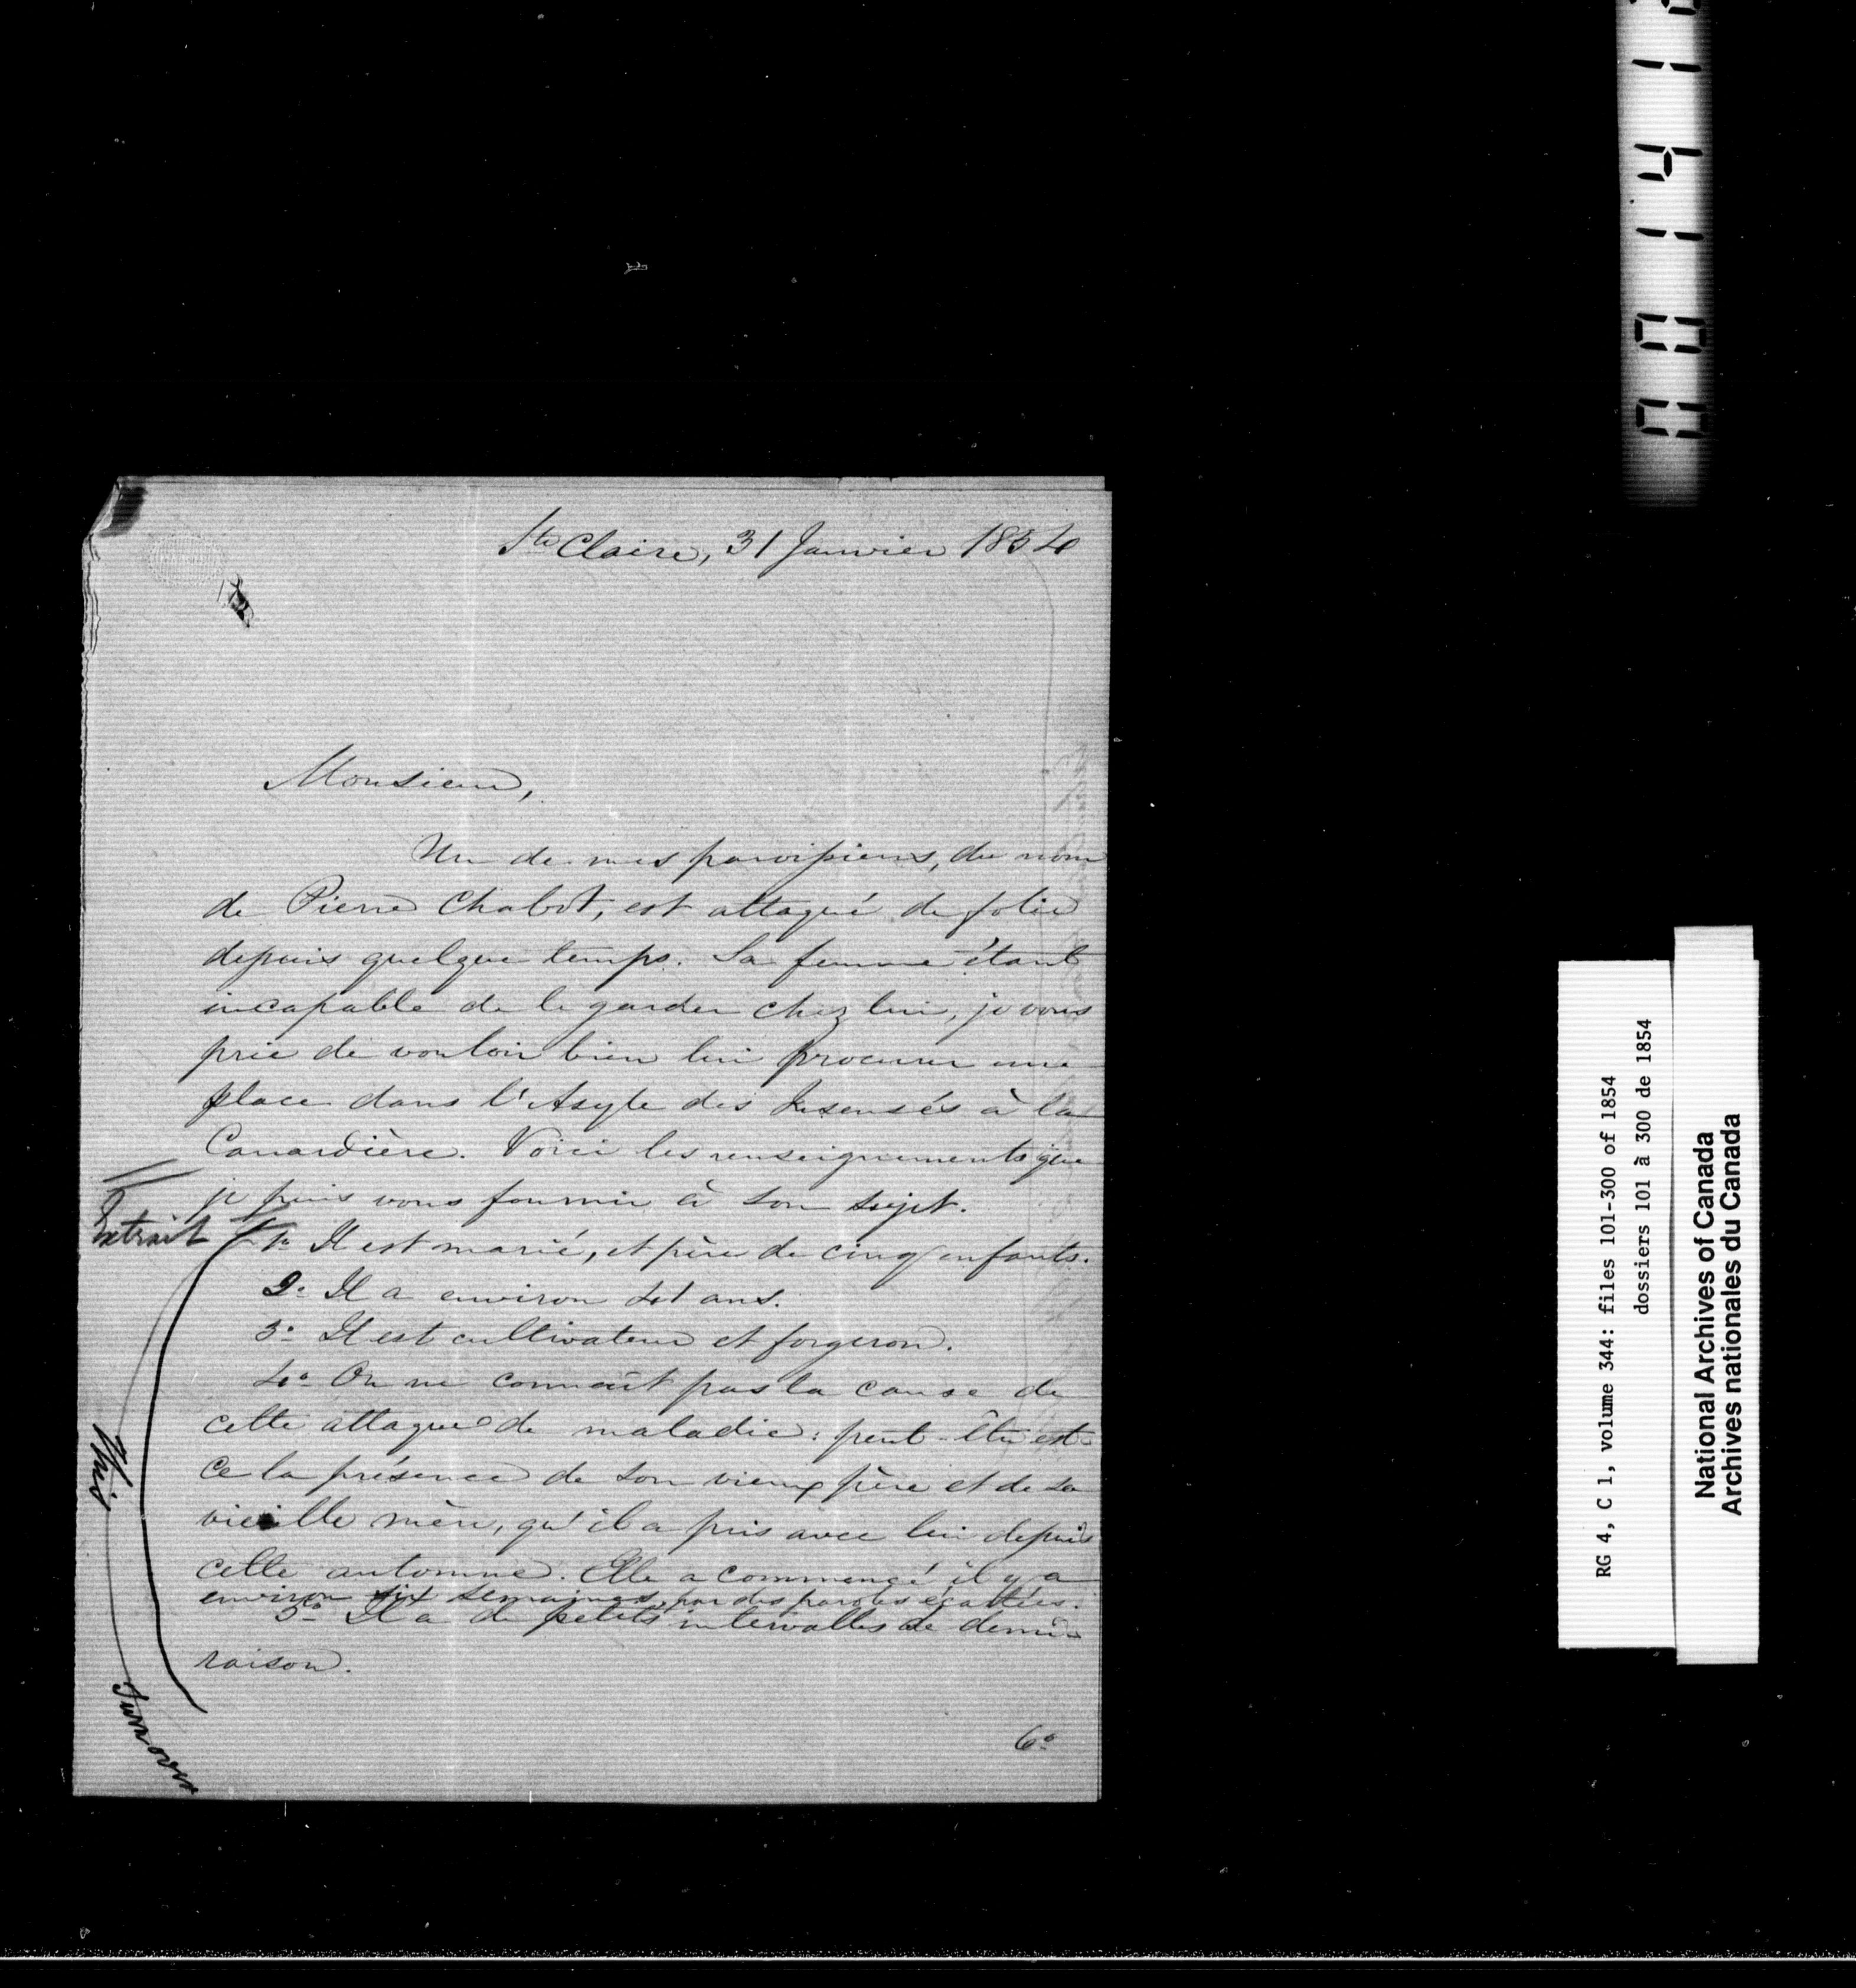 Ste Claire, 31 Janvier 1854
Monsieur,
Un de mes paroissiens, du nom
de Pierre Chabot, est attaqué de folie
depuis quelque temps. Sa femme étant
incapable de le garder chez lui, je vous
prie de vouloir bien lui procurer une
place dans l'Asyle des Insensés à la
Canardière. Voici les renseignements que
je puis vous fournir à son sujet.
Extrait
1o Il est marié, et père de cinq enfants.
2o Il a environ 41 ans.
3o Il est cultivateur et forgeron.
4o On ne connait pas la cause de
cette attaque de maladie : peut-être est
ce la présence de son vieux père et de sa
vieille mère, qu'il a pris avec lui depuis
cette automne. Elle a commencé il y a
environ six semaines, par des paroles écartées.
5o Il a de petits intervalles de demi-
raison.
6o
This
Turn over
RG 4, C 1, volume 344: files 101-300 of 1854
dossiers 101 à 300 de 1854
National Archives of Canada
Archives nationales du Canada